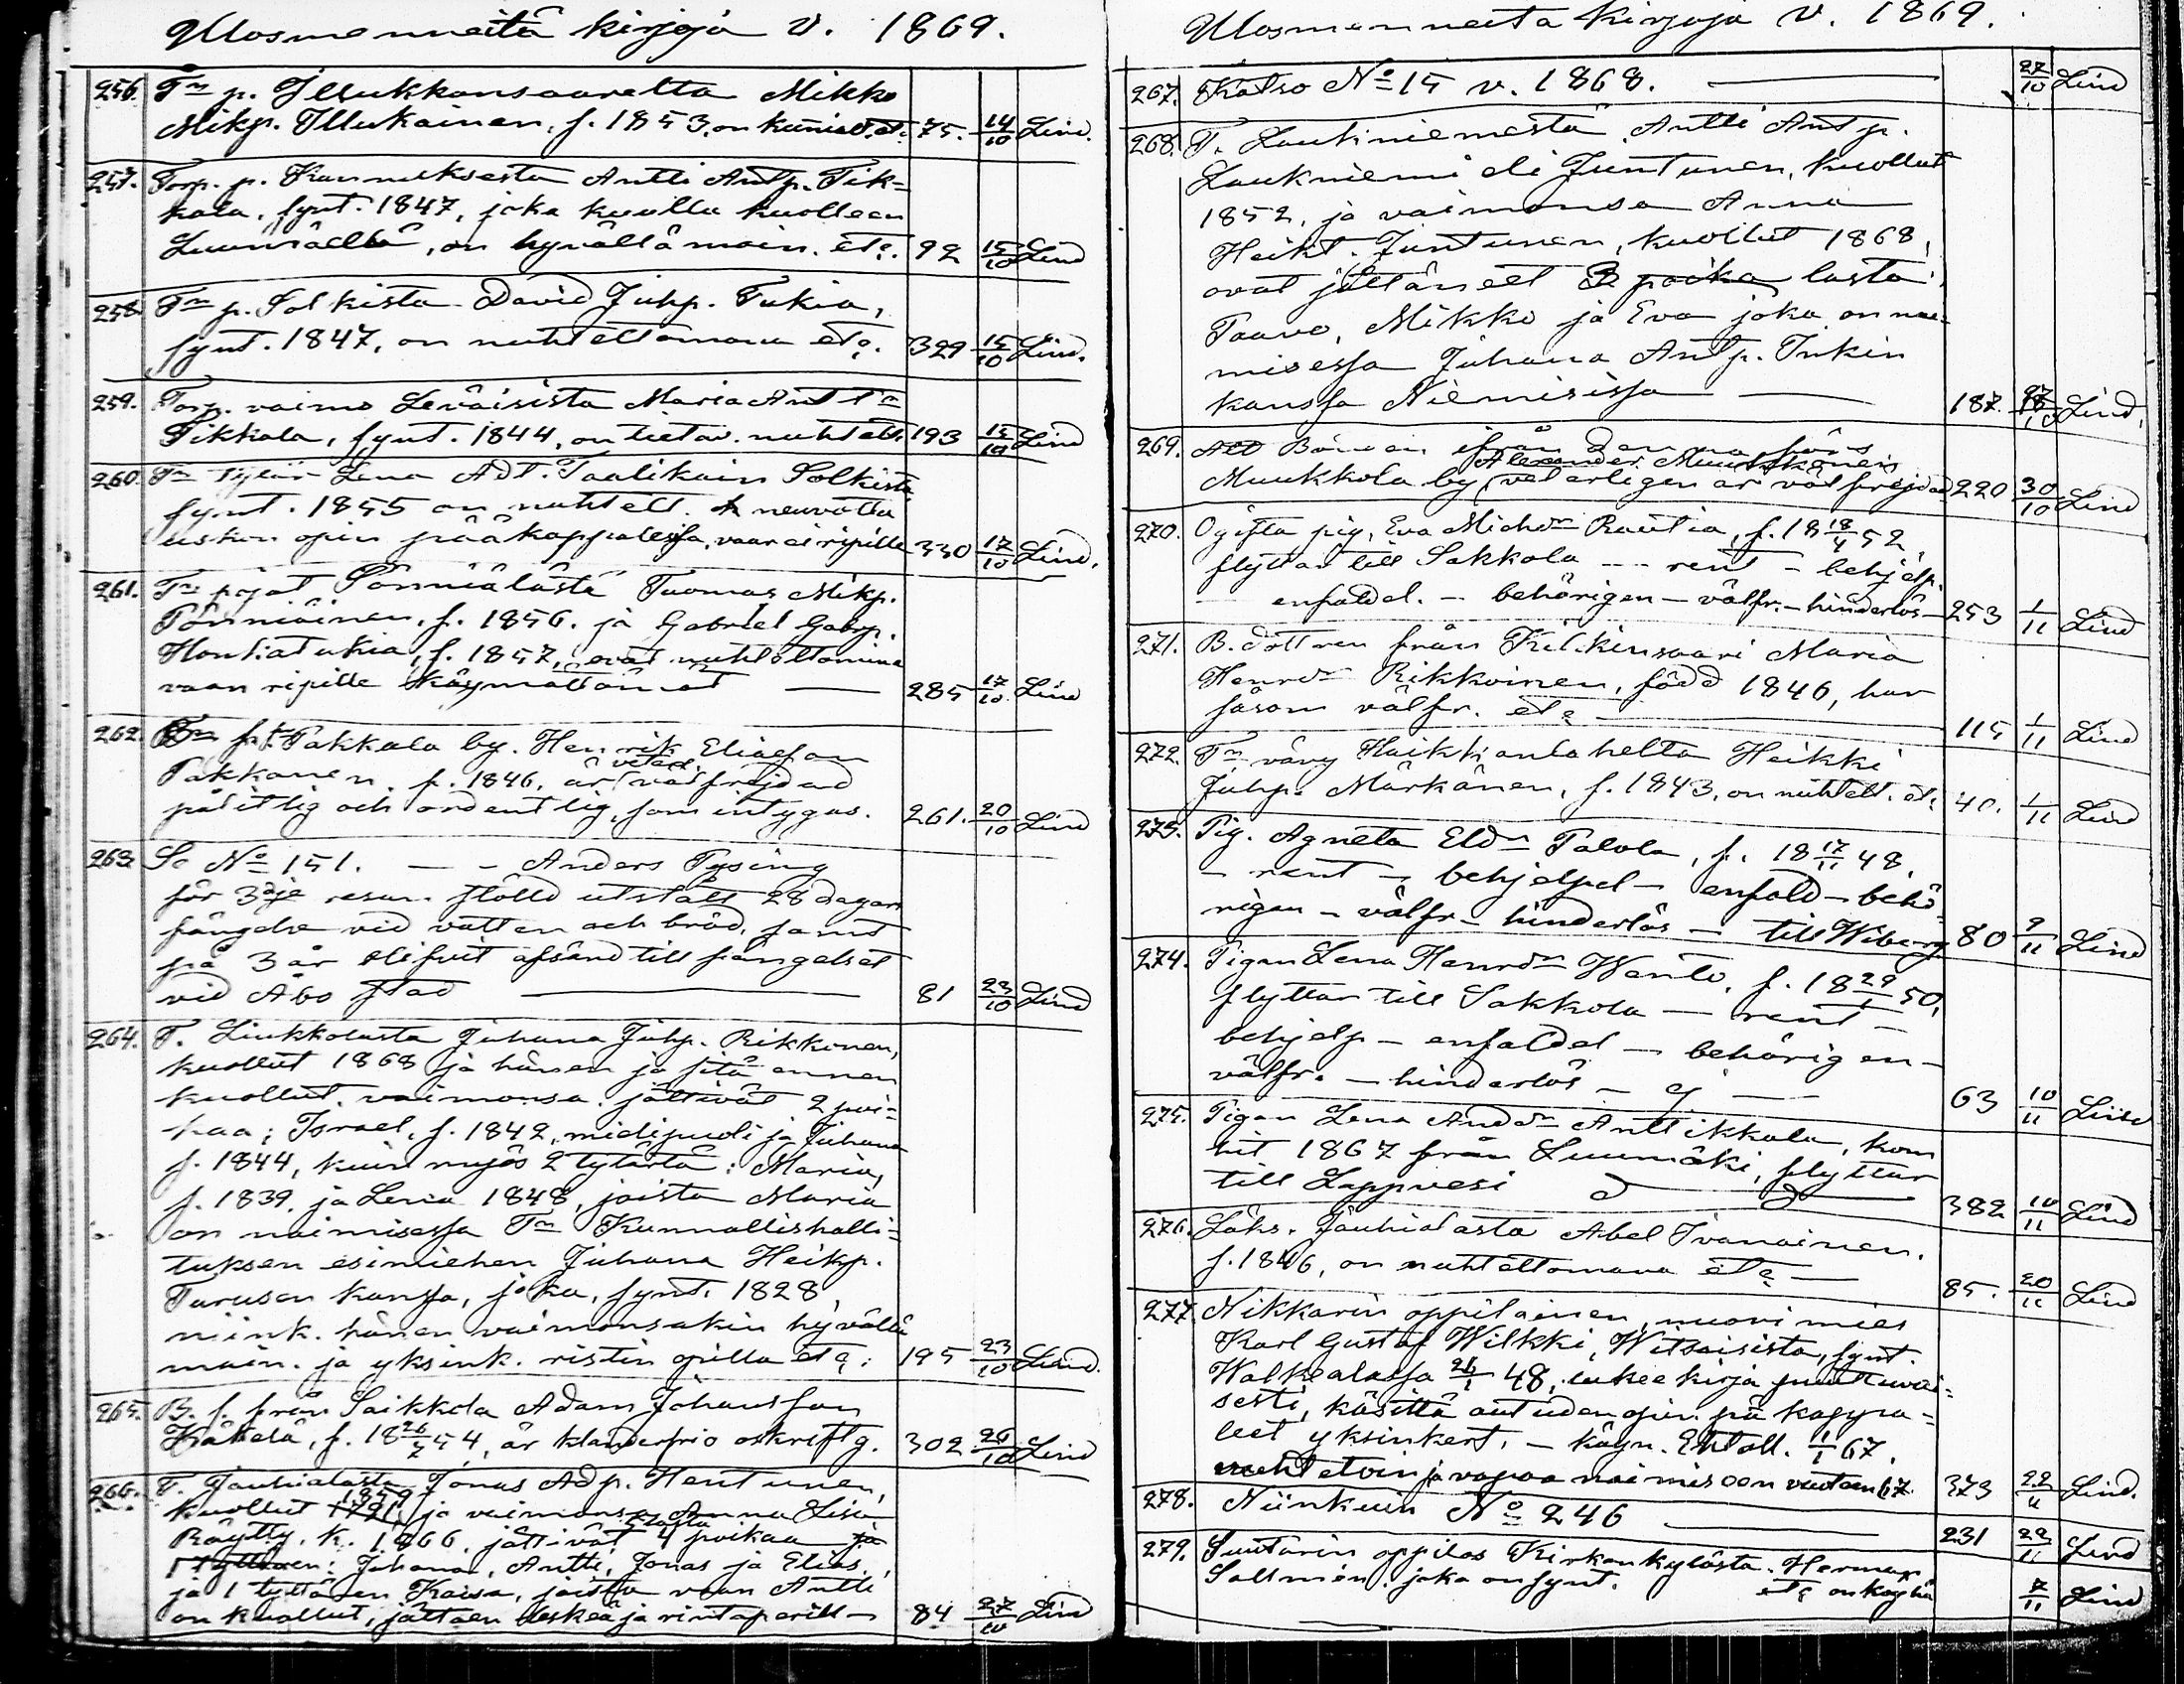 Ulosmenneitä kirjoja v. 1869.
256. Tn p. Illukkansaarelta Mikko
Mikp. Illukainen, f. 1853, on kunial. etc. 75. 14/10 Lind.
257. Torp. p. Kannuksesta Antti Antp. Tik-
kala, synt. 1847, joka kuullu kuolleen
Luumäellä, on hyvällä main. etc. 92 15/10 Lind
258. Tn p. Solkista David Juhp. Tukia,
synt. 1847, on nuhteettomana etc. 329 15/10 Lind.
259. Torp. vaimo Leväisistä Maria Ant tr
Tikkala, synt. 1844, on tietäv. nuhteet. 193 15/10 Lind
260. Tn tytär Lena Adt. Taalikain Solkista
synt. 1855 on nuhtett. neuvottu
uskon opin pääkappaleissa, vaan ei ripille 330 17/10 Lind.
261. Tn pojat Pönniälästä Tuomas Mikp.
Pönniäinen, f. 1856. ja Gabriel Gabrp.
Honkatukia, f. 1857, ovat nuhteettomina
vaan ripille käymättömät — 285 17/10 Lind
262. Pakkala by. Henrik Eliasson
Pakkanen, f. 1846, är väl frejdad
pålitlig och ordentlig, som intygas. 261. 20/10 Lind
263. Se No 151. — - Anders Pysing
för 3dje resan stöld utstått 28 dagars
fängelse vid vatten och bröd, samt
på 3 år blifvit afsänd till fängelset
vid Åbo stad — 81 23/10 Lind
264. T. Liukkolasta Juhana Juhp. Rikkonen,
kuollut 1868 ja hänen ja sitä ennen
kuollut vaimonsa jättivät 2 poi-
kaa; Israel, f. 1842, mielipuoli ja Juhana
f. 1844, kuin myös 2 tytärtä: Maria,
f. 1839, ja Lena 1848, joista Maria
on naimisessa Tn Kunnallishalli-
tuksen esimiehen Juhana Heikp.
Turusen kanssa, joka, synt. 1828
niink. hänen vaimonsakin hyvällä
main. ja yksink. ristin opilla etc: 195 23/10 Lind.
265. B. s. från Saikkola Adam Johansson
Kähelä, f. 18 26/7 54, är klanderfri o oskriftg. 302 26/10 Lind
266. T. Jauhialasta Jonas Adp. Hentunen,
kuollut 1859, ja vaimonsa Anna Lisa
Räytty, k. 1866, jättivät 4 poikaa ja
1 tyttären: Juhana, Antti, Jonas ja Elias,
ja 1 tyttären Kaisa, joista vaan Antti
on kuollut, jättäen leskeä ja rintaperill— 84 27/10 Lind
Ulosmenneitä kirjoja v. 1869.
267. Katso No 15 v. 1868. — 27/10 Lind
268. T. Laukniemestä Antti Antp.
Laukniemi eli Juntunen, kuollut
1852, ja vaimonsa Anna
Heikt. Juntunen, kuollut 1868,
ovat jättäneet 3 lasta:
Paavo, Mikko ja Eva joka on nai-
misessa Juhana Antp. Inkin
kanssa Niemisissä — 187. Lind.
269. Bonden ifrån denna förs
Muukkola by, Alexander Muukkonen
vederligen är väl frejdad 220 30/10 Lind
270. Ogifta pig. Eva Michsdr Rautia, f. 18 18/4 52
flyttar till Sakkola -- rent - behjelp.
- enfaldel. - behörigen - välfr. - hinderlös - 253 1/11 Lind
271. B. dottren från Kilkinsaari Maria
Henrdr Rikkoinen, född 1846, har
såsom välfr. etc — 115 1/11 Lind
272. Tn vävy Haikkaanlahelta Heikki
Juhp. Märkänen, f. 1843, on nuhtett. etc. 40. 1/11 Lind
273. Pig. Agneta Eldr Talola, f. 18 17/11 48.
- rent - behjelpel - enfald - behö-
rigen - välfr - hinderlös - till Wiborg 80 9/11 Lind
274. Pigan Lena Henrdr Wento, f. 18 29/1 50,
flyttar till Sakkola — rent -
behjelp - enfaldel - behörigen -
välfr. - hinderlös - ej — 63 10/11 Lind
275. Pigan Lena Anddr Anttikkala, kom
hit 1867 från Luumäki, flyttar
till Lappvesi — 382 10/11 Lind
276. Löhs. Jauhialasta Abel Ivanainen.
f. 1846, on nuhteettomana etc — 85. 20/11 Lind
277. Nikkarin oppilainen, nuori mies
Karl Gustaf Wilkki, Witsaisista, synt.
Walkealassa 26/1 48, lukee kirja puuttuvai-
sesti, käsittä autuden opin pä kappa-
leet yksinkert. - käyn. Ehtoll. 1/1 67.
nuhtetoin ja vapaa naimiseen vuoteen 67. 373 22/11 Lind.
278. Niinkuin No 246 — 231 22/11 Lind
279. Suutarin oppilas Kirkonkylästä. Herman
Sallmén, joka on synt. etc on käynyt 7/11 Lind